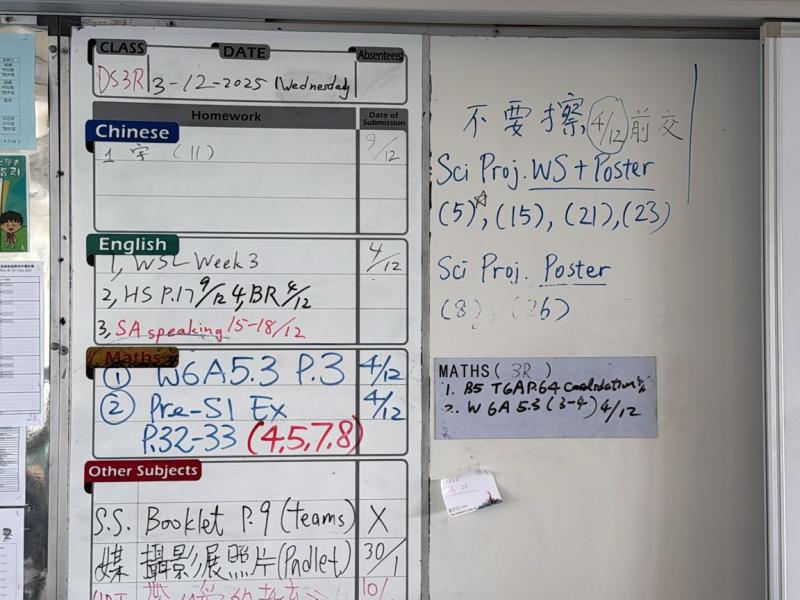 CLASS
DATE
Absentees
DS3R 3-12-2025 Wednesday
Homework
Date of Submission
Chinese
1 字 (11) 9/12
English
1, WSL Week 3 4/12
2, HS P.17 9/12 4, BR 4/12
3, SA speaking 15-18/12
Maths
① W6A5.3 P.3 4/12
② Pre-S1 Ex 4/12
P.32-33 (4,5,7,8)
Other Subjects
S.S. Booklet P.9 (Teams) X
媒 攝影展照片(Padlet) 30/1
10/
不要擦, 4/12 前交
Sci Proj. WS + Poster
(5)☆, (15), (21), (23)
Sci Proj. Poster
(8) (26)
MATHS( 3R )
1. B5 T6A P.64 Consolidation
2. W 6A 5.3 (3-4) 4/12